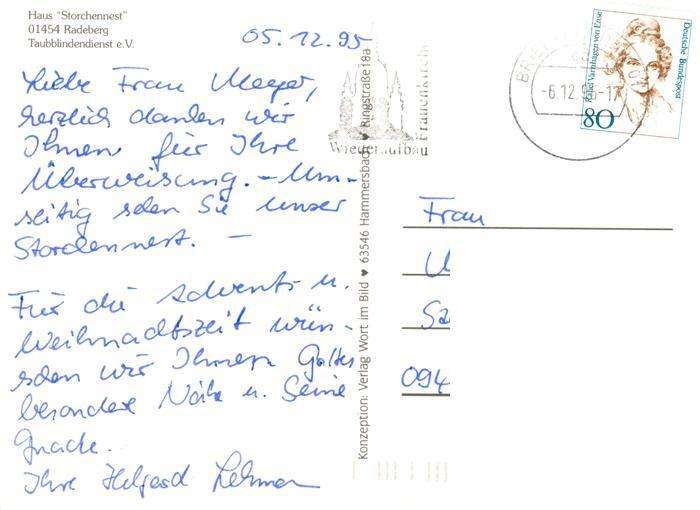 Haus "Storchennest"
01454 Radeberg
Taubblindendienst e.V.
05.12.95
Liebe Frau Meyer,
herzlich danken wir
Ihnen für Ihre
Überweisung. – Um-
seitig sehen Sie unser
Storchennest. –
Für die Advents- u.
Weihnachtszeit wün-
schen wir Ihnen Gottes
besondere Nähe u. Seine
Gnade.
Ihre Helgard Lehmann
Konzeption: Verlag Wort im Bild ♥ 63546 Hammersbach ♥ Ringstraße 18a
Wiederaufbau
Frauenkirche
-6.12.95-17
Rahel Varnhagen von Ense
Deutsche Bundespost
80
Frau
U
Sa
094